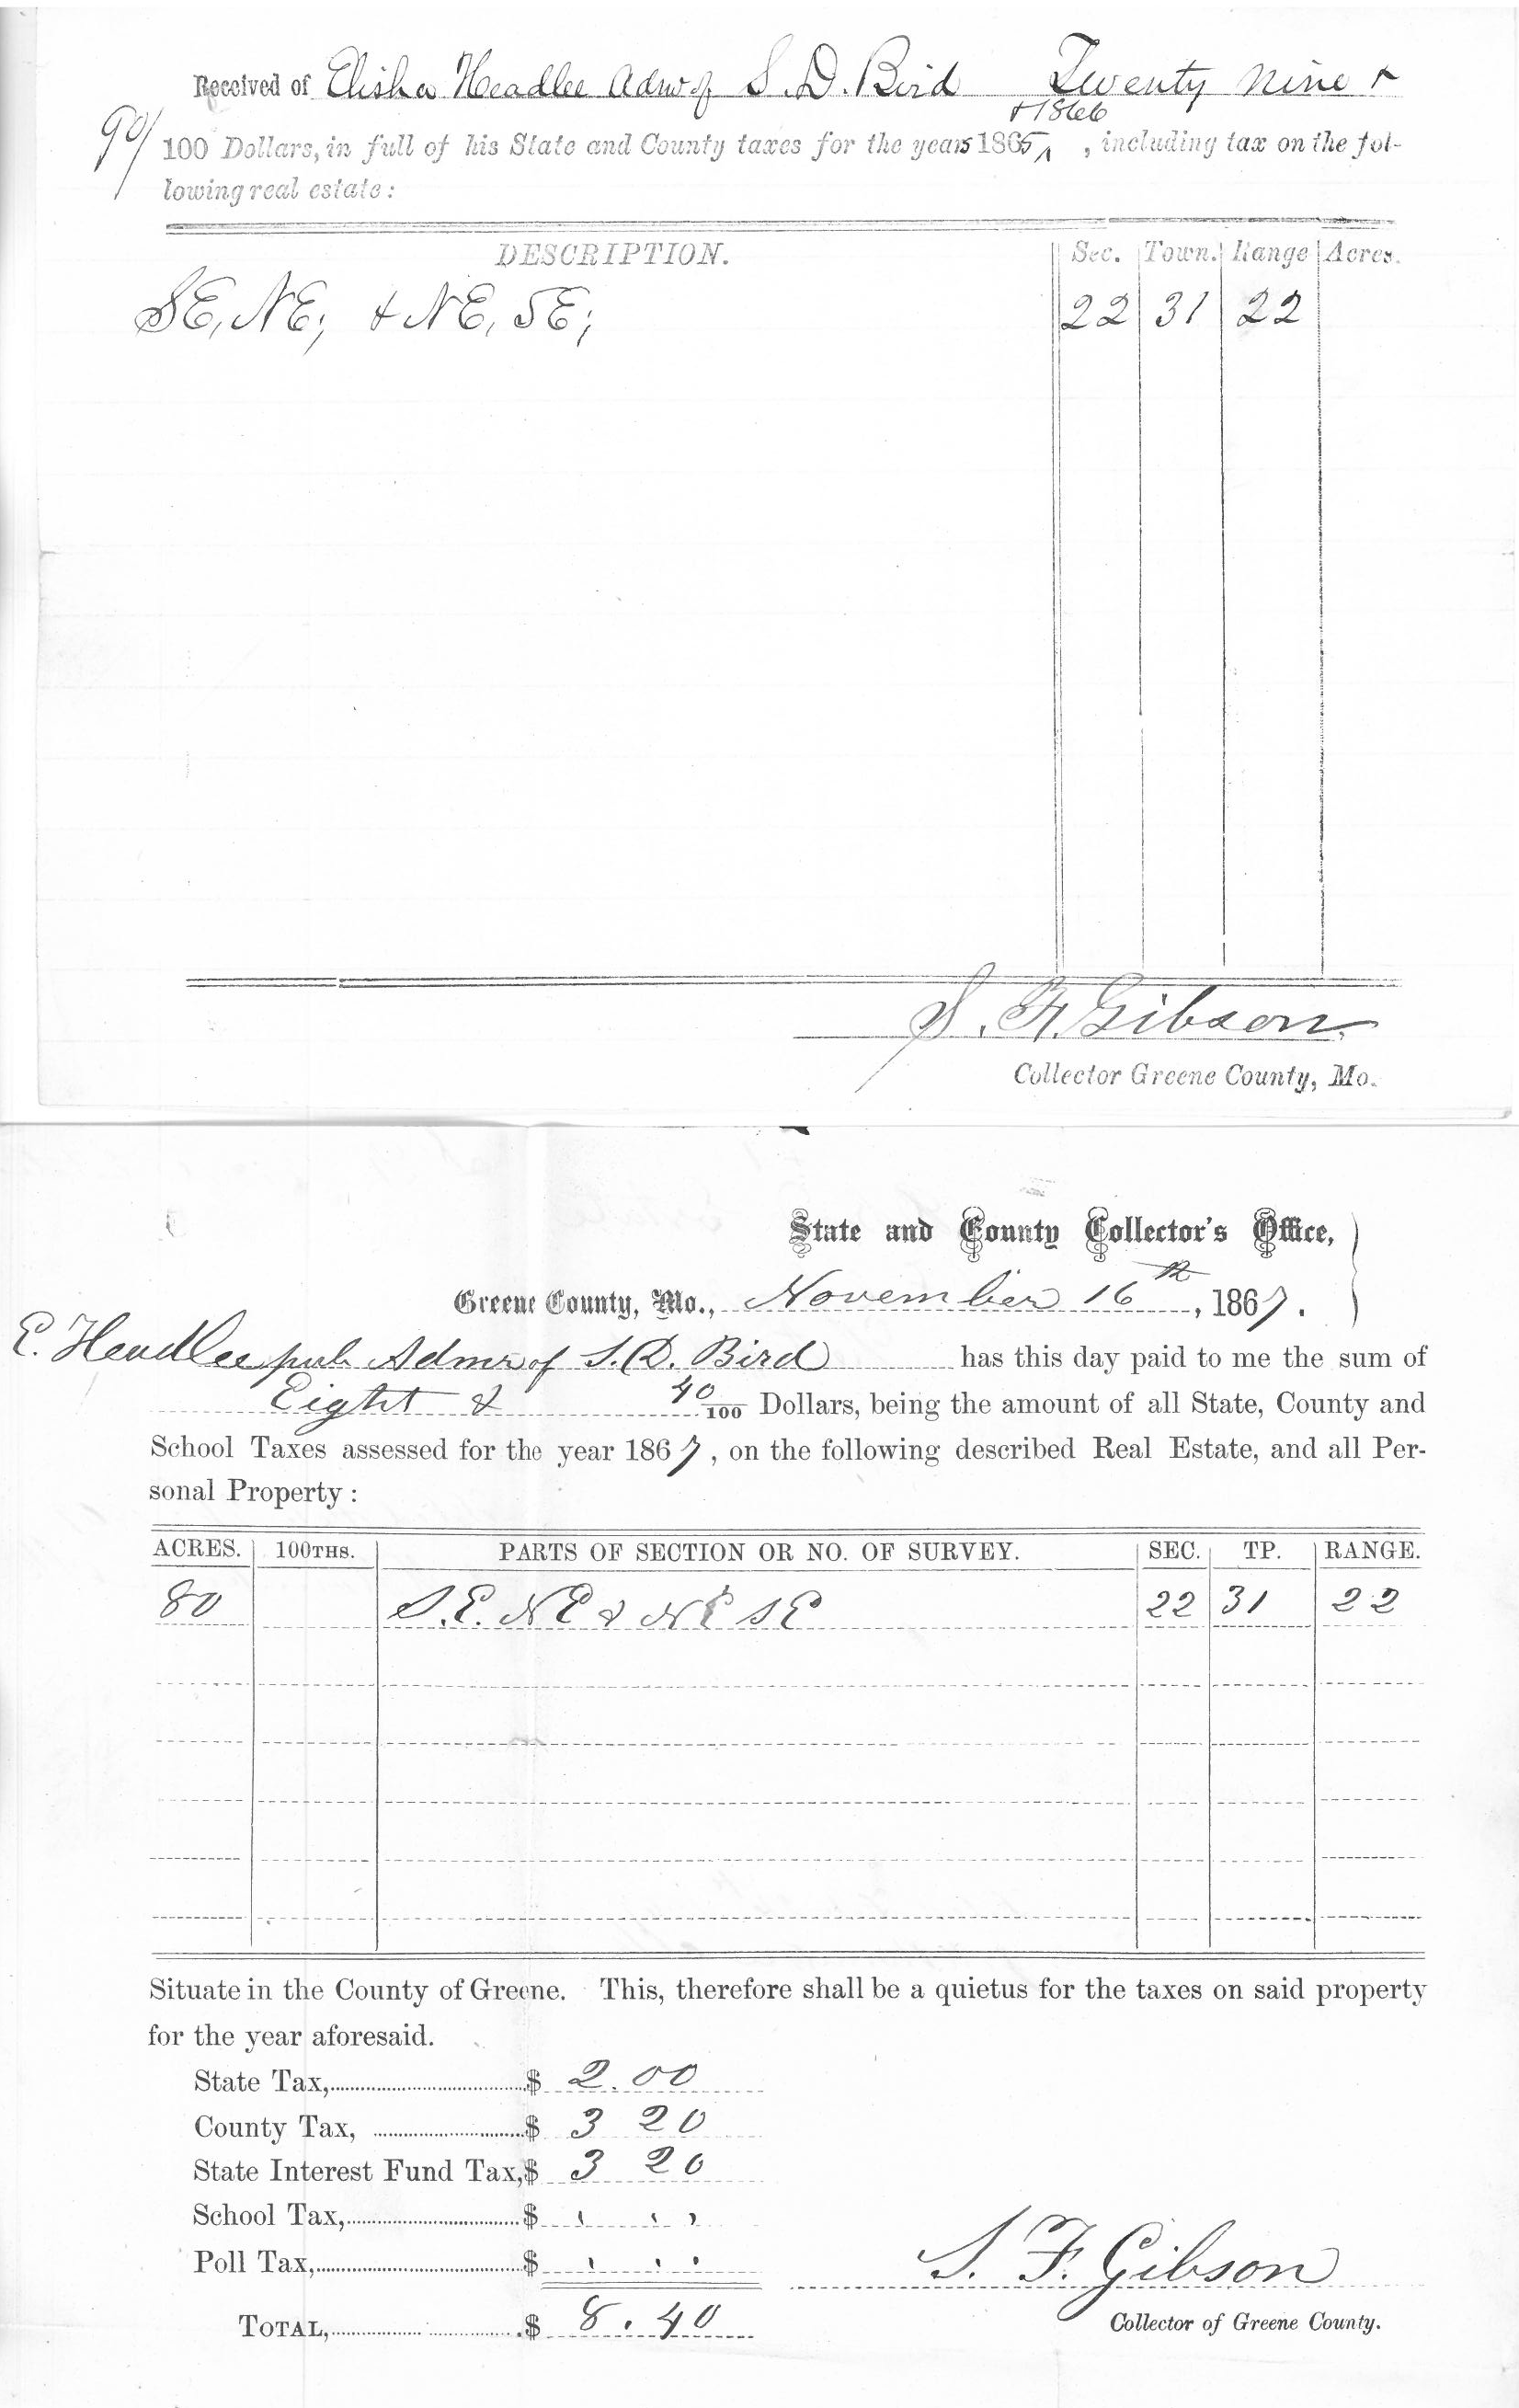 Received of Elisha Headlee Adm of S. D. Bird Twenty nine &
& 1866
90/100 Dollars, in full of his State and County taxes for the years 1865 ^, including tax on the fol-
lowing real estate:
DESCRIPTION. Sec. Town. Range Acres.
SE, NE; & NE, SE; 22 31 22
S. F. Gibson
Collector Greene County, Mo.
State and County Collector's Office,
Greene County, Mo., November 16th, 1867.
E. Headlee pub Admr of S. D. Bird has this day paid to me the sum of
Eight & 40/100 Dollars, being the amount of all State, County and
School Taxes assessed for the year 1867, on the following described Real Estate, and all Per-
sonal Property:
ACRES. 100THS. PARTS OF SECTION OR NO. OF SURVEY. SEC. TP. RANGE.
80 S.E. NE & NE SE 22 31 22
Situate in the County of Greene. This, therefore shall be a quietus for the taxes on said property
for the year aforesaid.
State Tax, $ 2.00
County Tax, $ 3 20
State Interest Fund Tax, $ 3 20
School Tax, $ " "
Poll Tax, $ " "
S. F. Gibson
TOTAL, $ 8.40
Collector of Greene County.